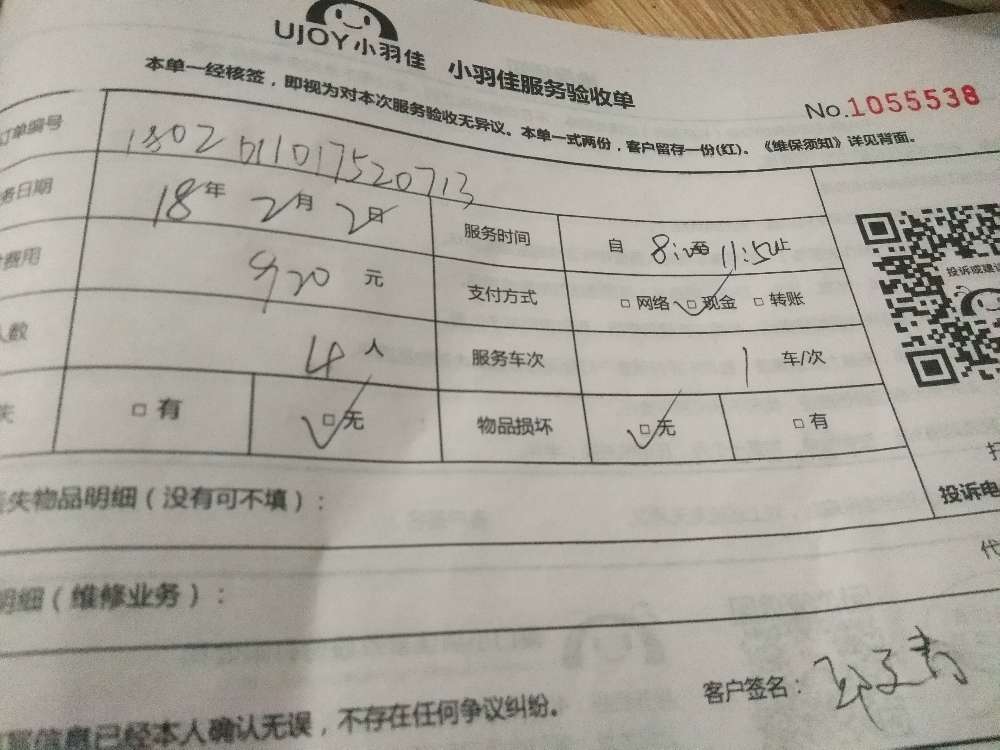 UJOY小羽佳 小羽佳服务验收单
No.1055538
本单一经核签，即视为对本次服务验收无异议。本单一式两份，客户留存一份(红)。《维保须知》详见背面。
订单编号 1802011017520713
务日期 18年 2月 2日 服务时间 自 8:00至 11:50止
费用 920元 支付方式 □网络 □现金 □转账
人数 4人 服务车次 1 车/次
失 □有 □无 物品损坏 □无 □有
投诉或建议
失物品明细（没有可不填）：
投诉电
代
明细（维修业务）：
客户签名：
信息已经本人确认无误，不存在任何争议纠纷。